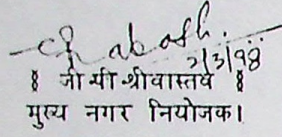 2/3/98
𑁍 जी सी श्रीवास्तव 𑁍
मुख्य नगर नियोजक।